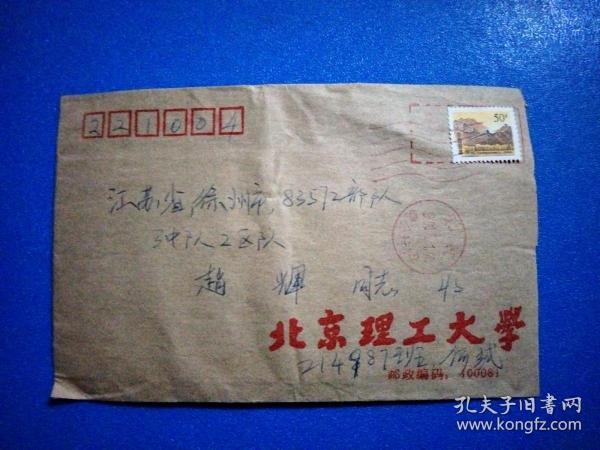 221004
50分
江苏省徐州市83572部队
3中队2区队
赵 辉 同志 收
北京理工大學
214987班
邮政编码: 100081
孔夫子旧书网
www.kongfz.com